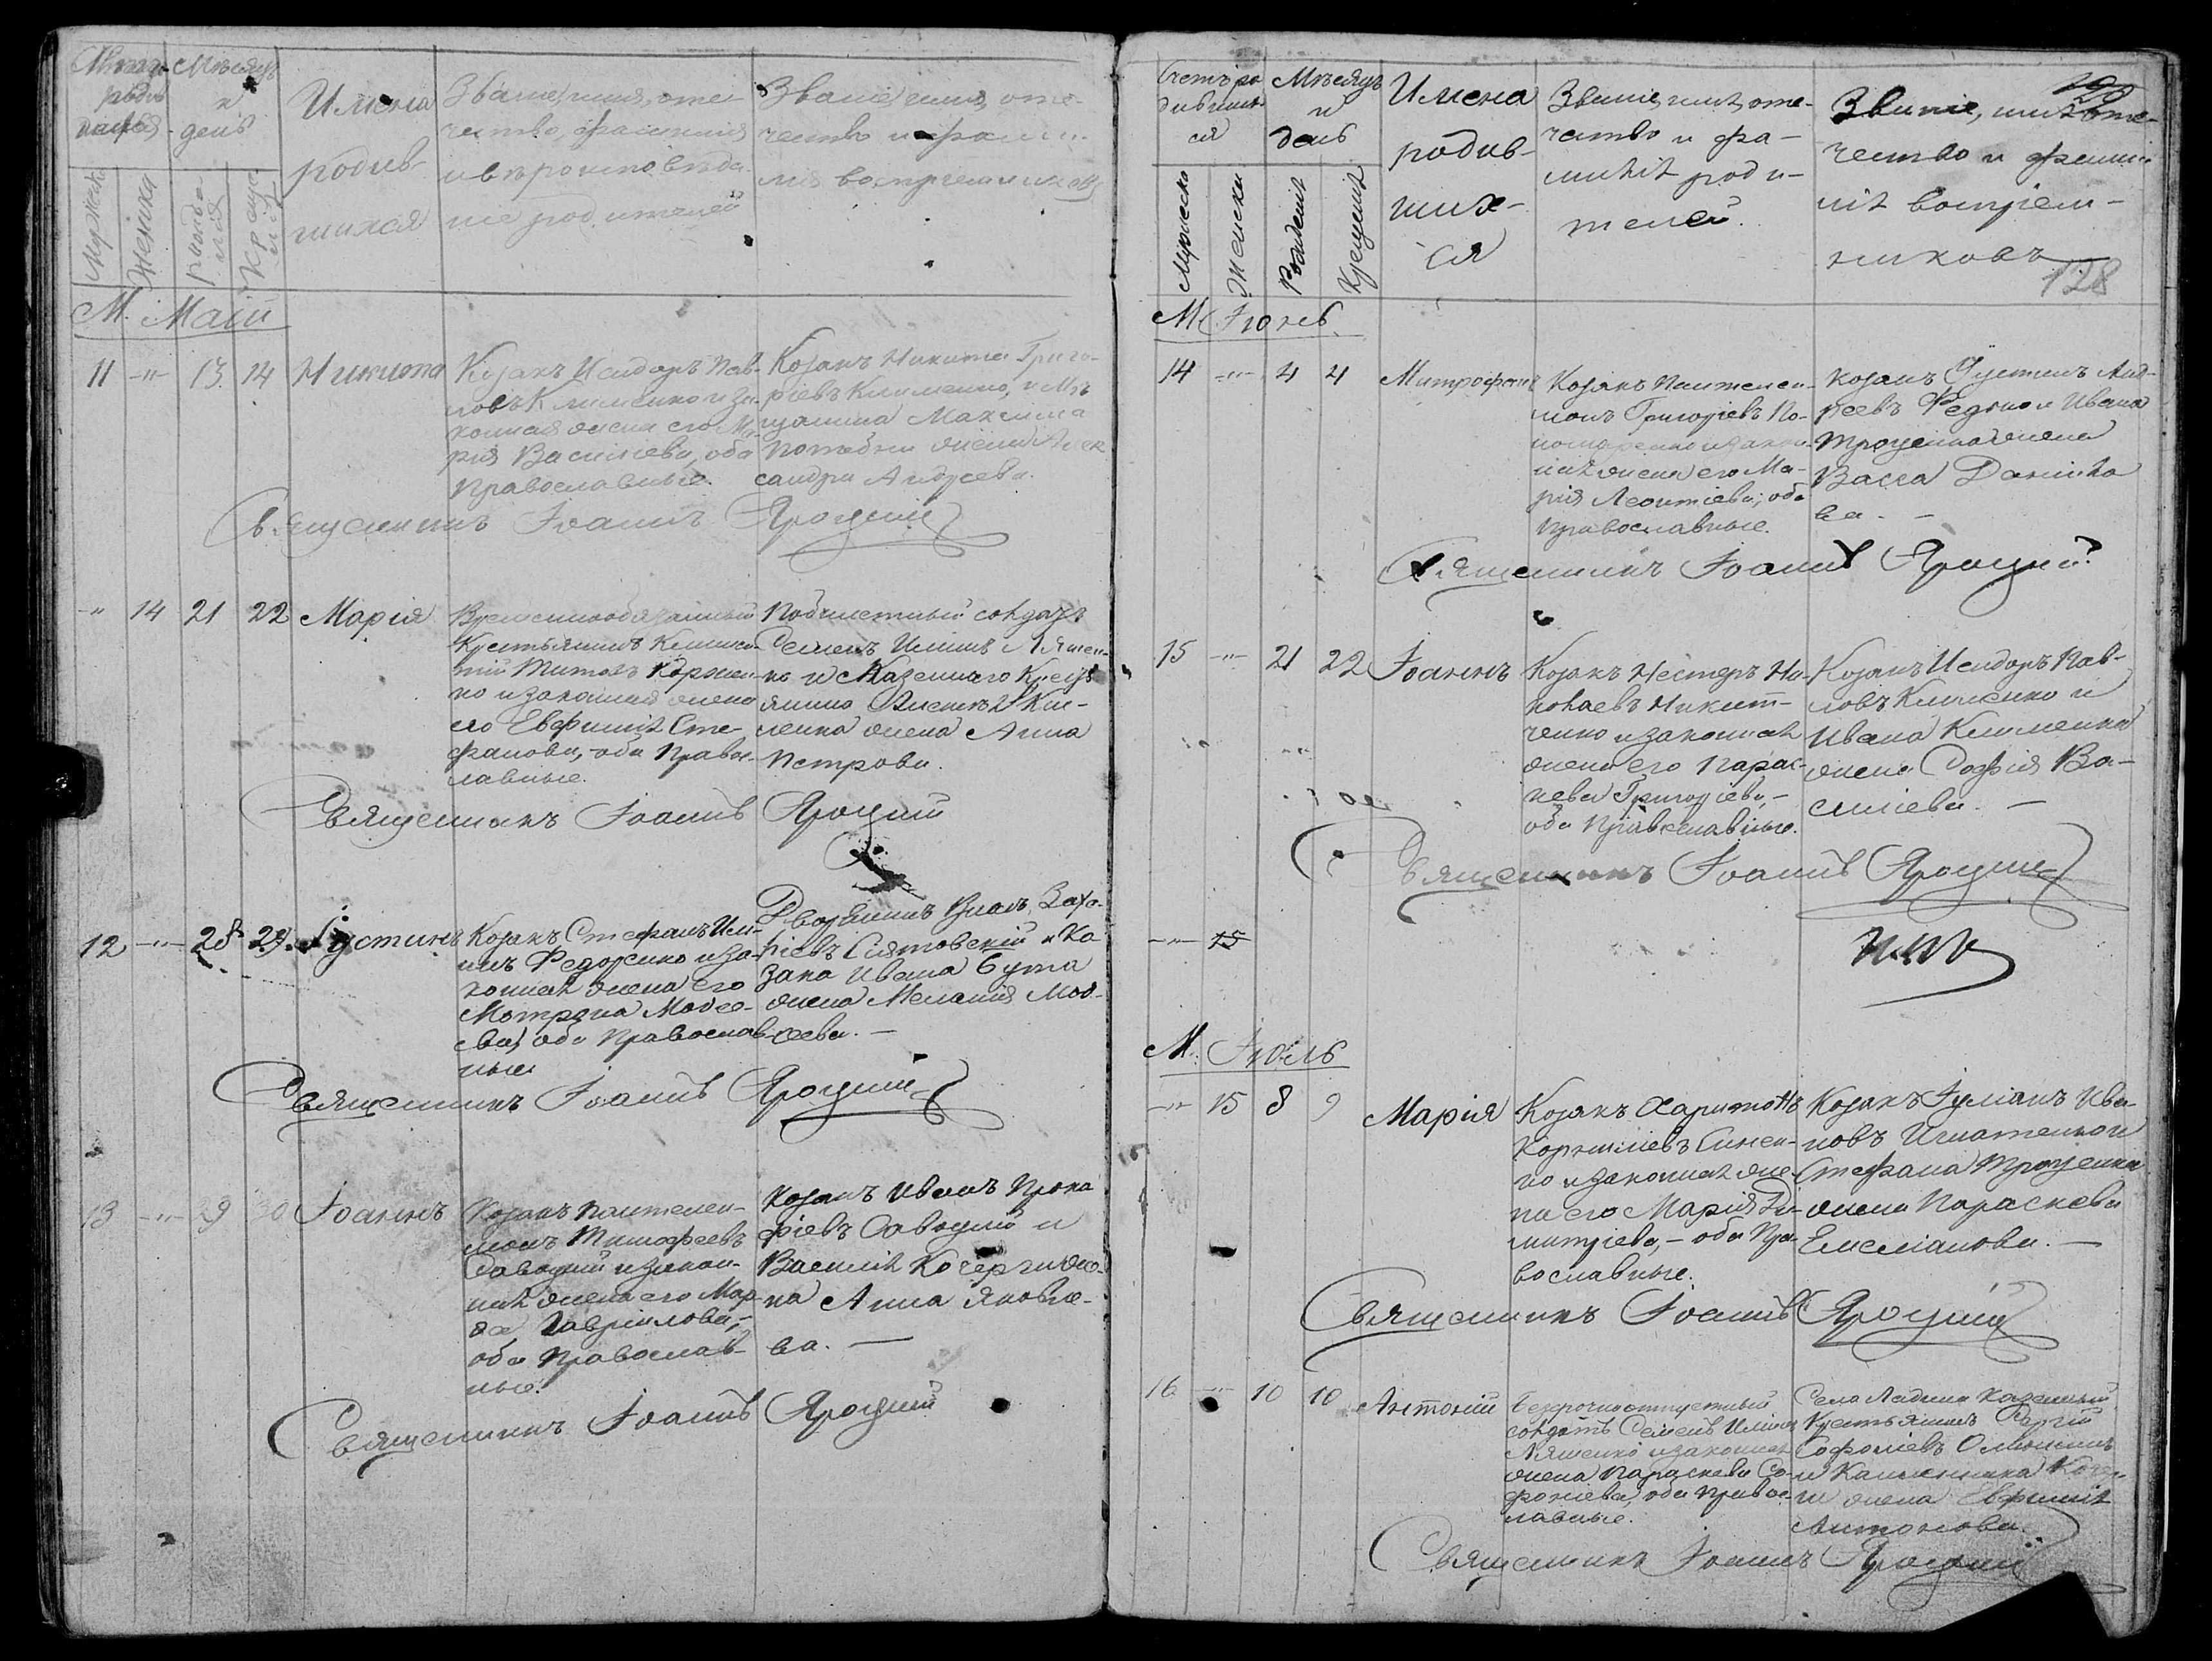 Мѣсяцъ
и
день
Имена
родив-
шихся
Званіе, имя, оте-
чество, фамилія
и вѣроисповѣда-
ніе родителей
Званіе, имя, оте-
чество и фами-
лія воспріемниковъ
Мужска
Женска
рожде-
нія
Креще-
нія
М. Маій
11 -"- 13 14 Никита
Козакъ Исидоръ Пав-
ловъ Клименко и за-
конная жена его Ма-
рія Васильева, оба
православные.
Козакъ Никита Григо-
ріевъ Клименко, и Мѣ-
щанина Максима
жена Алек
сандра Андреева.
Священникъ Іоаннъ Яроцкій
-"- 14 21 22 Марія
Временнообязанный
Крестьянинъ Климен-
тій Титовъ Коржен-
ко и законная жена
его Евфимія Сте-
фанова, - оба Правос-
лавные.
солдатъ
Семенъ Ильинъ Ляшен-
ко и Казеннаго Кресть
янина Кли-
менка жена Анна
Петрова.
Священникъ Іоаннъ Яроцкій
12 -"- 28 29 Іустинъ
Козакъ Стефанъ Иль-
инъ Федоренко и за-
конная жена его
Мотрона Моисе-
ева, оба Православ-
ные
Дворянинъ Заха-
ріевъ и Ко
зака Ивана Бута
жена Меланія Мои-
сеева. -
Священникъ Іоаннъ Яроцкій
13 -"- 29 30 Іоаннъ
Козакъ Пантелеи-
монъ Тимофеевъ
Савоцкій и закон-
ная жена его Мар-
ѳа Гавріилова, -
оба Православ-
ные.
Козакъ Иванъ Прока
фіевъ Савоцкій и
Василія Кочерги же-
на Анна Яковле-
ва. -
Священникъ Іоаннъ Яроцкій
Счетъ ро
дившихъ
ся
Мѣсяцъ
и
день
Имена
родив-
ших-
ся
Званіе, имя, оте-
чество и фа-
милія роди-
телей.
Званіе, имя, оте-
чество и фами-
лія воспріем-
никовъ
128
Мужеска
Женска
Рожденія
Крещенія
М. Іюнь
14 -"- 4 4 Митрофанъ
Козакъ Пантелеи-
монъ Григоріевъ По-
номаренко и закон-
ная жена его Ма-
рія Леонтіева; оба
православные.
Козакъ Іустинъ Анд-
реевъ и Ивана
Троценка жена
Васса Данило
ва. -
Священникъ Іоаннъ Яроцкій
15 -"- 21 22 Іоаннъ
Козакъ Нестеръ Ни-
колаевъ Никит-
ченко и законная
жена его Парас-
кева Григоріева, -
оба Православные.
Козакъ Исидоръ Пав-
ловъ Клименко и
Ивана Клименка
жена Софія Ва-
сильева. -
Священникъ Іоаннъ Яроцкій
-"- 15
М. Іюль
-"- 15 8 9 Марія
Козакъ Харитонъ
Корниліевъ Синен-
ко и законная же-
на его Марія Ди-
митріева, - оба Пра-
вославные.
Козакъ Іуліанъ Ива-
новъ Игнатенко и
Стефана Троценка
жена Параскева
Емеліанова. -
Священникъ Іоаннъ Яроцкій
16 -"- 10 10 Антоній
Безсрочноотпускный
солдатъ Семенъ Ильинъ
Ляшенко и законная
жена Параскева Со-
фоніева, оба Правос-
лавные.
Села Ладина Казенный
Крестьянинъ Сергій
Софоніевъ
и
жена Евфимія
Антонова.
Священникъ Іоаннъ Яроцкій